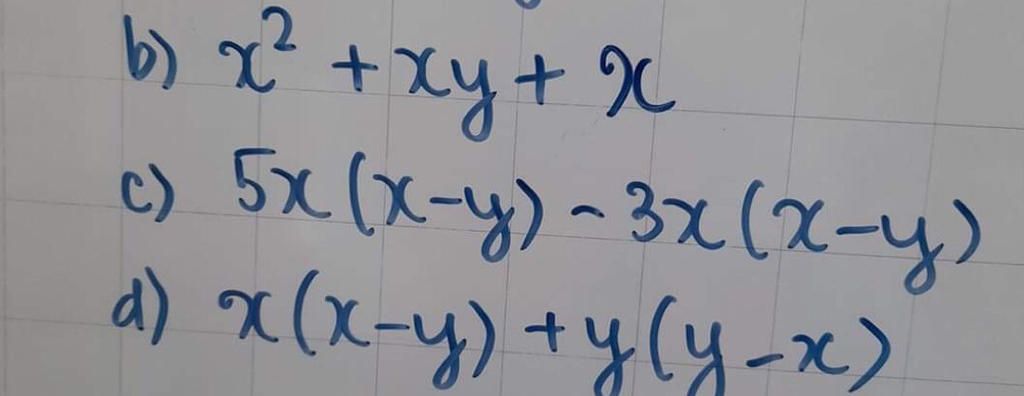 b) x² + xy + x
c) 5x (x-y) - 3x (x-y)
d) x(x-y) + y(y-x)